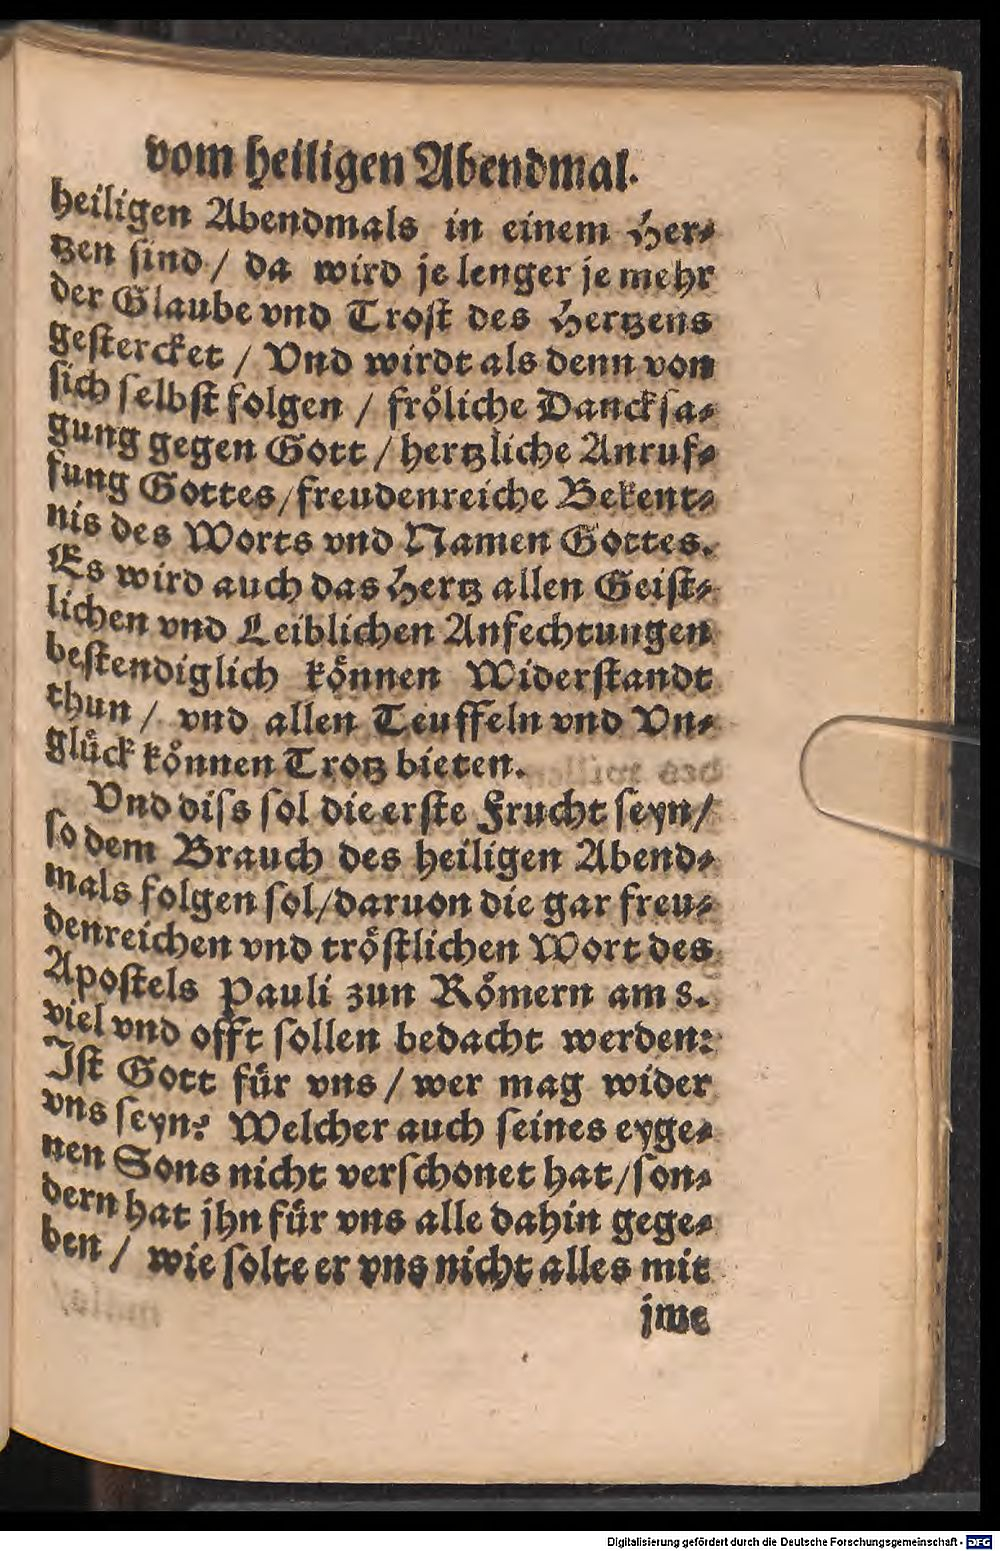 vom heiligen Abendmal.
heiligen Abendmals in einem Her⸗
tzen sind / da wird je lenger je mehr
der Glaube vnd Trost des Hertzens
gestercket / Vnd wirdt als denn von
sich selbst folgen / fröliche Dancksa⸗
gung gegen Gott / hertzliche Anruf⸗
fung Gottes / freudenreiche Bekent⸗
nis des Worts vnd Namen Gottes.
Es wird auch das Hertz allen Geist⸗
lichen vnd Leiblichen Anfechtungen
bestendiglich können Widerstandt
thun / vnd allen Teuffeln vnd Vn⸗
glück können Trotz bieten.
Vnd diss sol die erste Frucht seyn /
so dem Brauch des heiligen Abend⸗
mals folgen sol / daruon die gar freu⸗
denreichen vnd tröstlichen Wort des
Apostels Pauli zun Römern am 8.
viel vnd offt sollen bedacht werden:
Ist Gott für vns / wer mag wider
vns seyn? Welcher auch seines eyge⸗
nen Sons nicht verschonet hat / son⸗
dern hat jhn für vns alle dahin gege⸗
ben / wie solte er vns nicht alles mit
jme
Digitalisierung gefördert durch die Deutsche Forschungsgemeinschaft - DFG